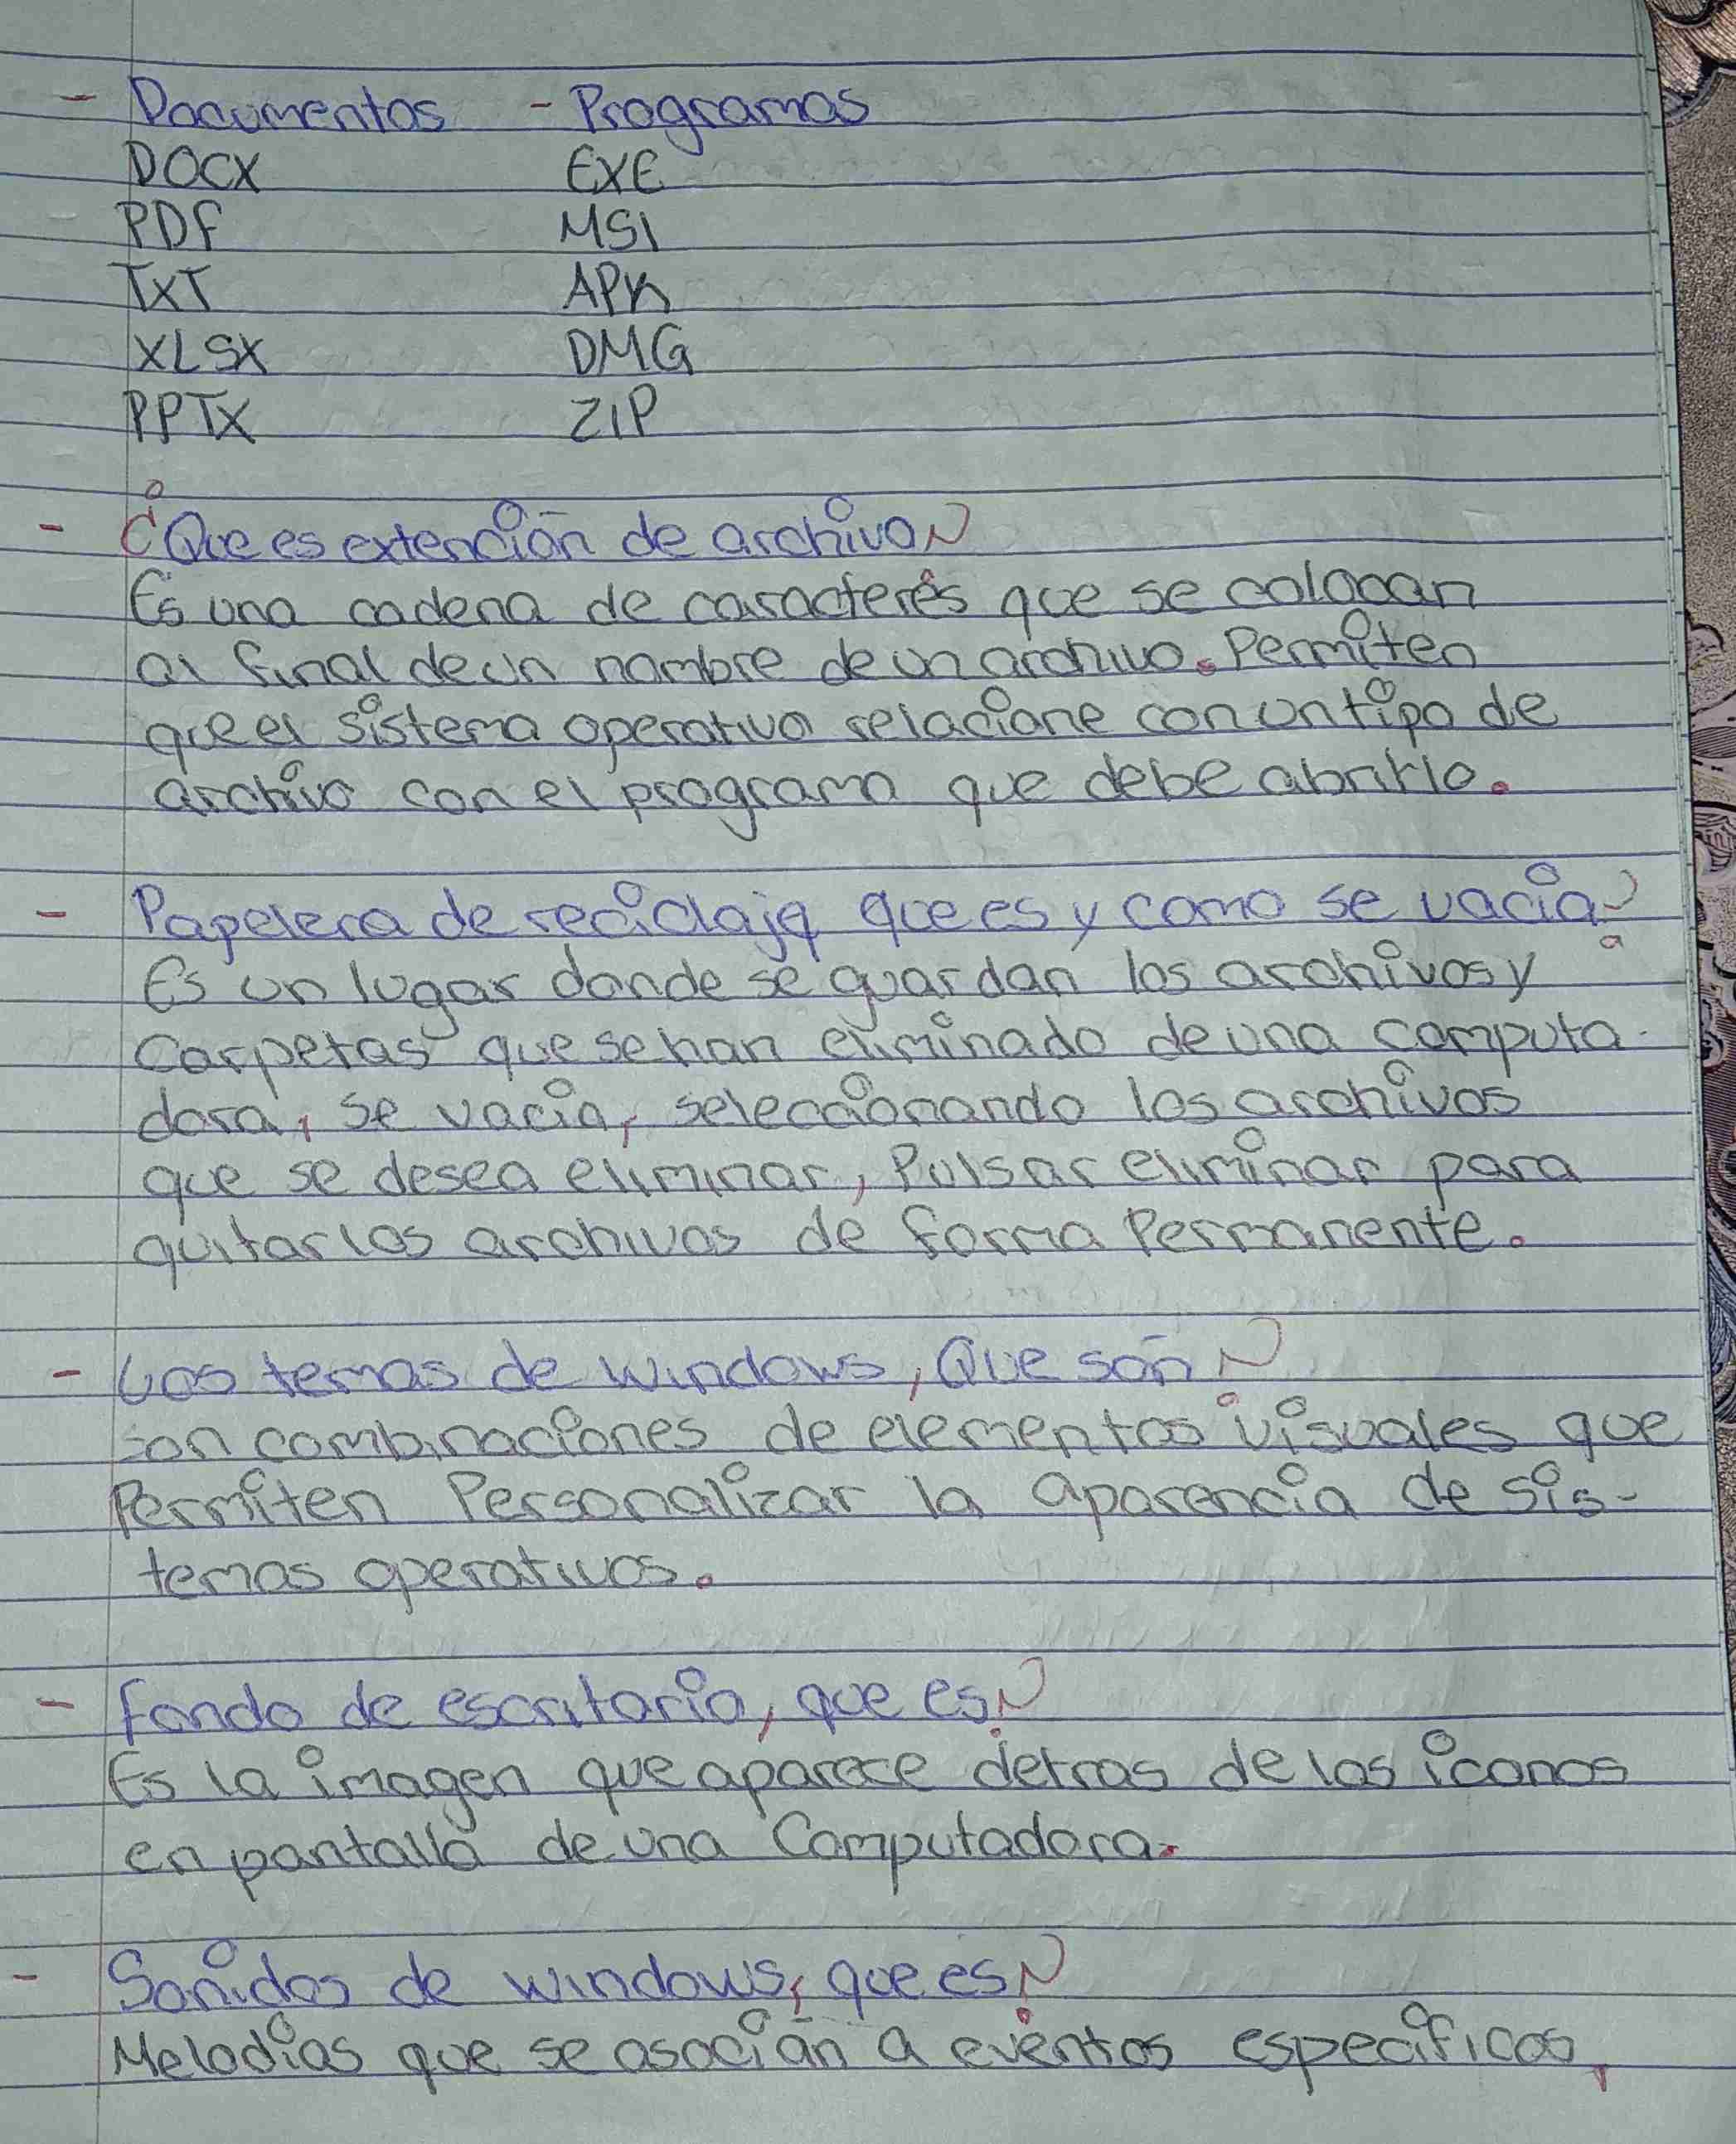 - Documentos - Programas
DOCX EXE
PDF MSI
TXT APK
XLSX DMG
PPTX ZIP
- ¿Que es extención de archivo?
Es una cadena de caracterés que se colocan
al final de un nombre de un archivo. Permiten
que el sistema operativo relacione con un tipo de
archivo con el programa que debe abrirlo.
- Papelera de reciclaje que es y como se vacia?
Es un lugar donde se guardan los archivos y
Carpetas que se han eliminado de una computa-
dora, se vacia, seleccionando los archivos
que se desea eliminar, Pulsar eliminar para
quitar los archivos de forma Permanente.
- Los temas de windows, Que son?
son combinaciones de elementos visuales que
Permiten Personalizar la aparencia de sis-
temas operativos.
- Fondo de escritorio, que es?
Es la imagen que aparece detras de los iconos
en pantalla de una Computadora.
- Sonidos de windows, que es?
Melodias que se asocian a eventos especificos,